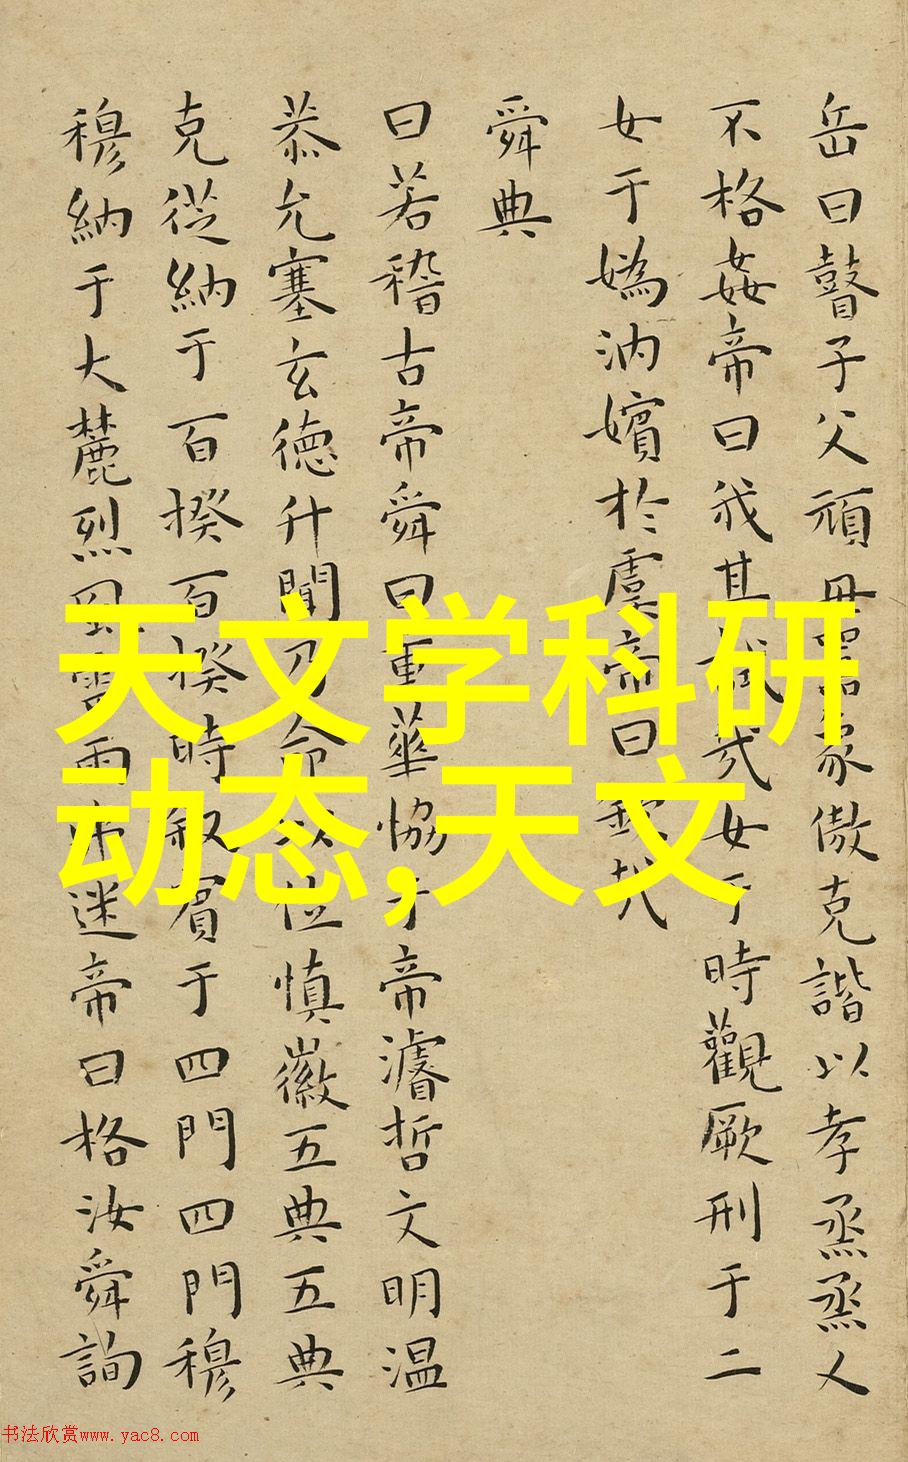 岳曰瞽子父頑母嚚象傲克諧以孝烝烝乂
不格姦帝曰我其試哉女于時觀厥刑于二
女于嬀汭嬪於虞帝曰欽哉
舜典
曰若稽古帝舜曰重華協于帝濬哲文明温
恭允塞玄德升聞乃命以位慎徽五典五典
克從納于百揆百揆時敘賓于四門四門穆
穆納于大麓烈風雷雨弗迷帝曰格汝舜詢
天文学科研
动态,天文
书法欣赏www.yac8.com